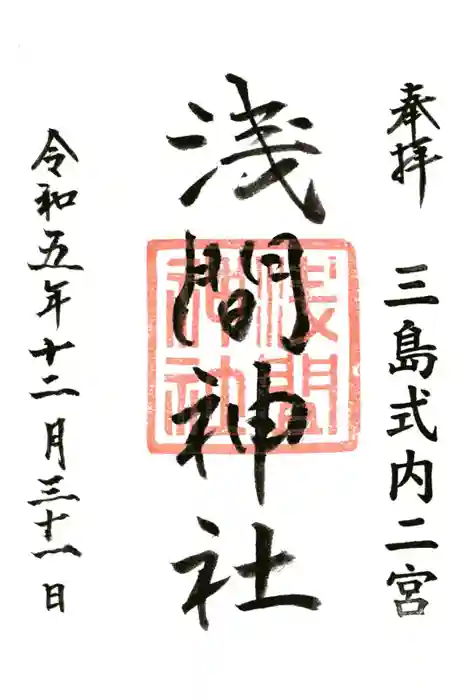 奉拝 三島式内二宮
浅間神社
浅間神社
令和五年十二月三十一日